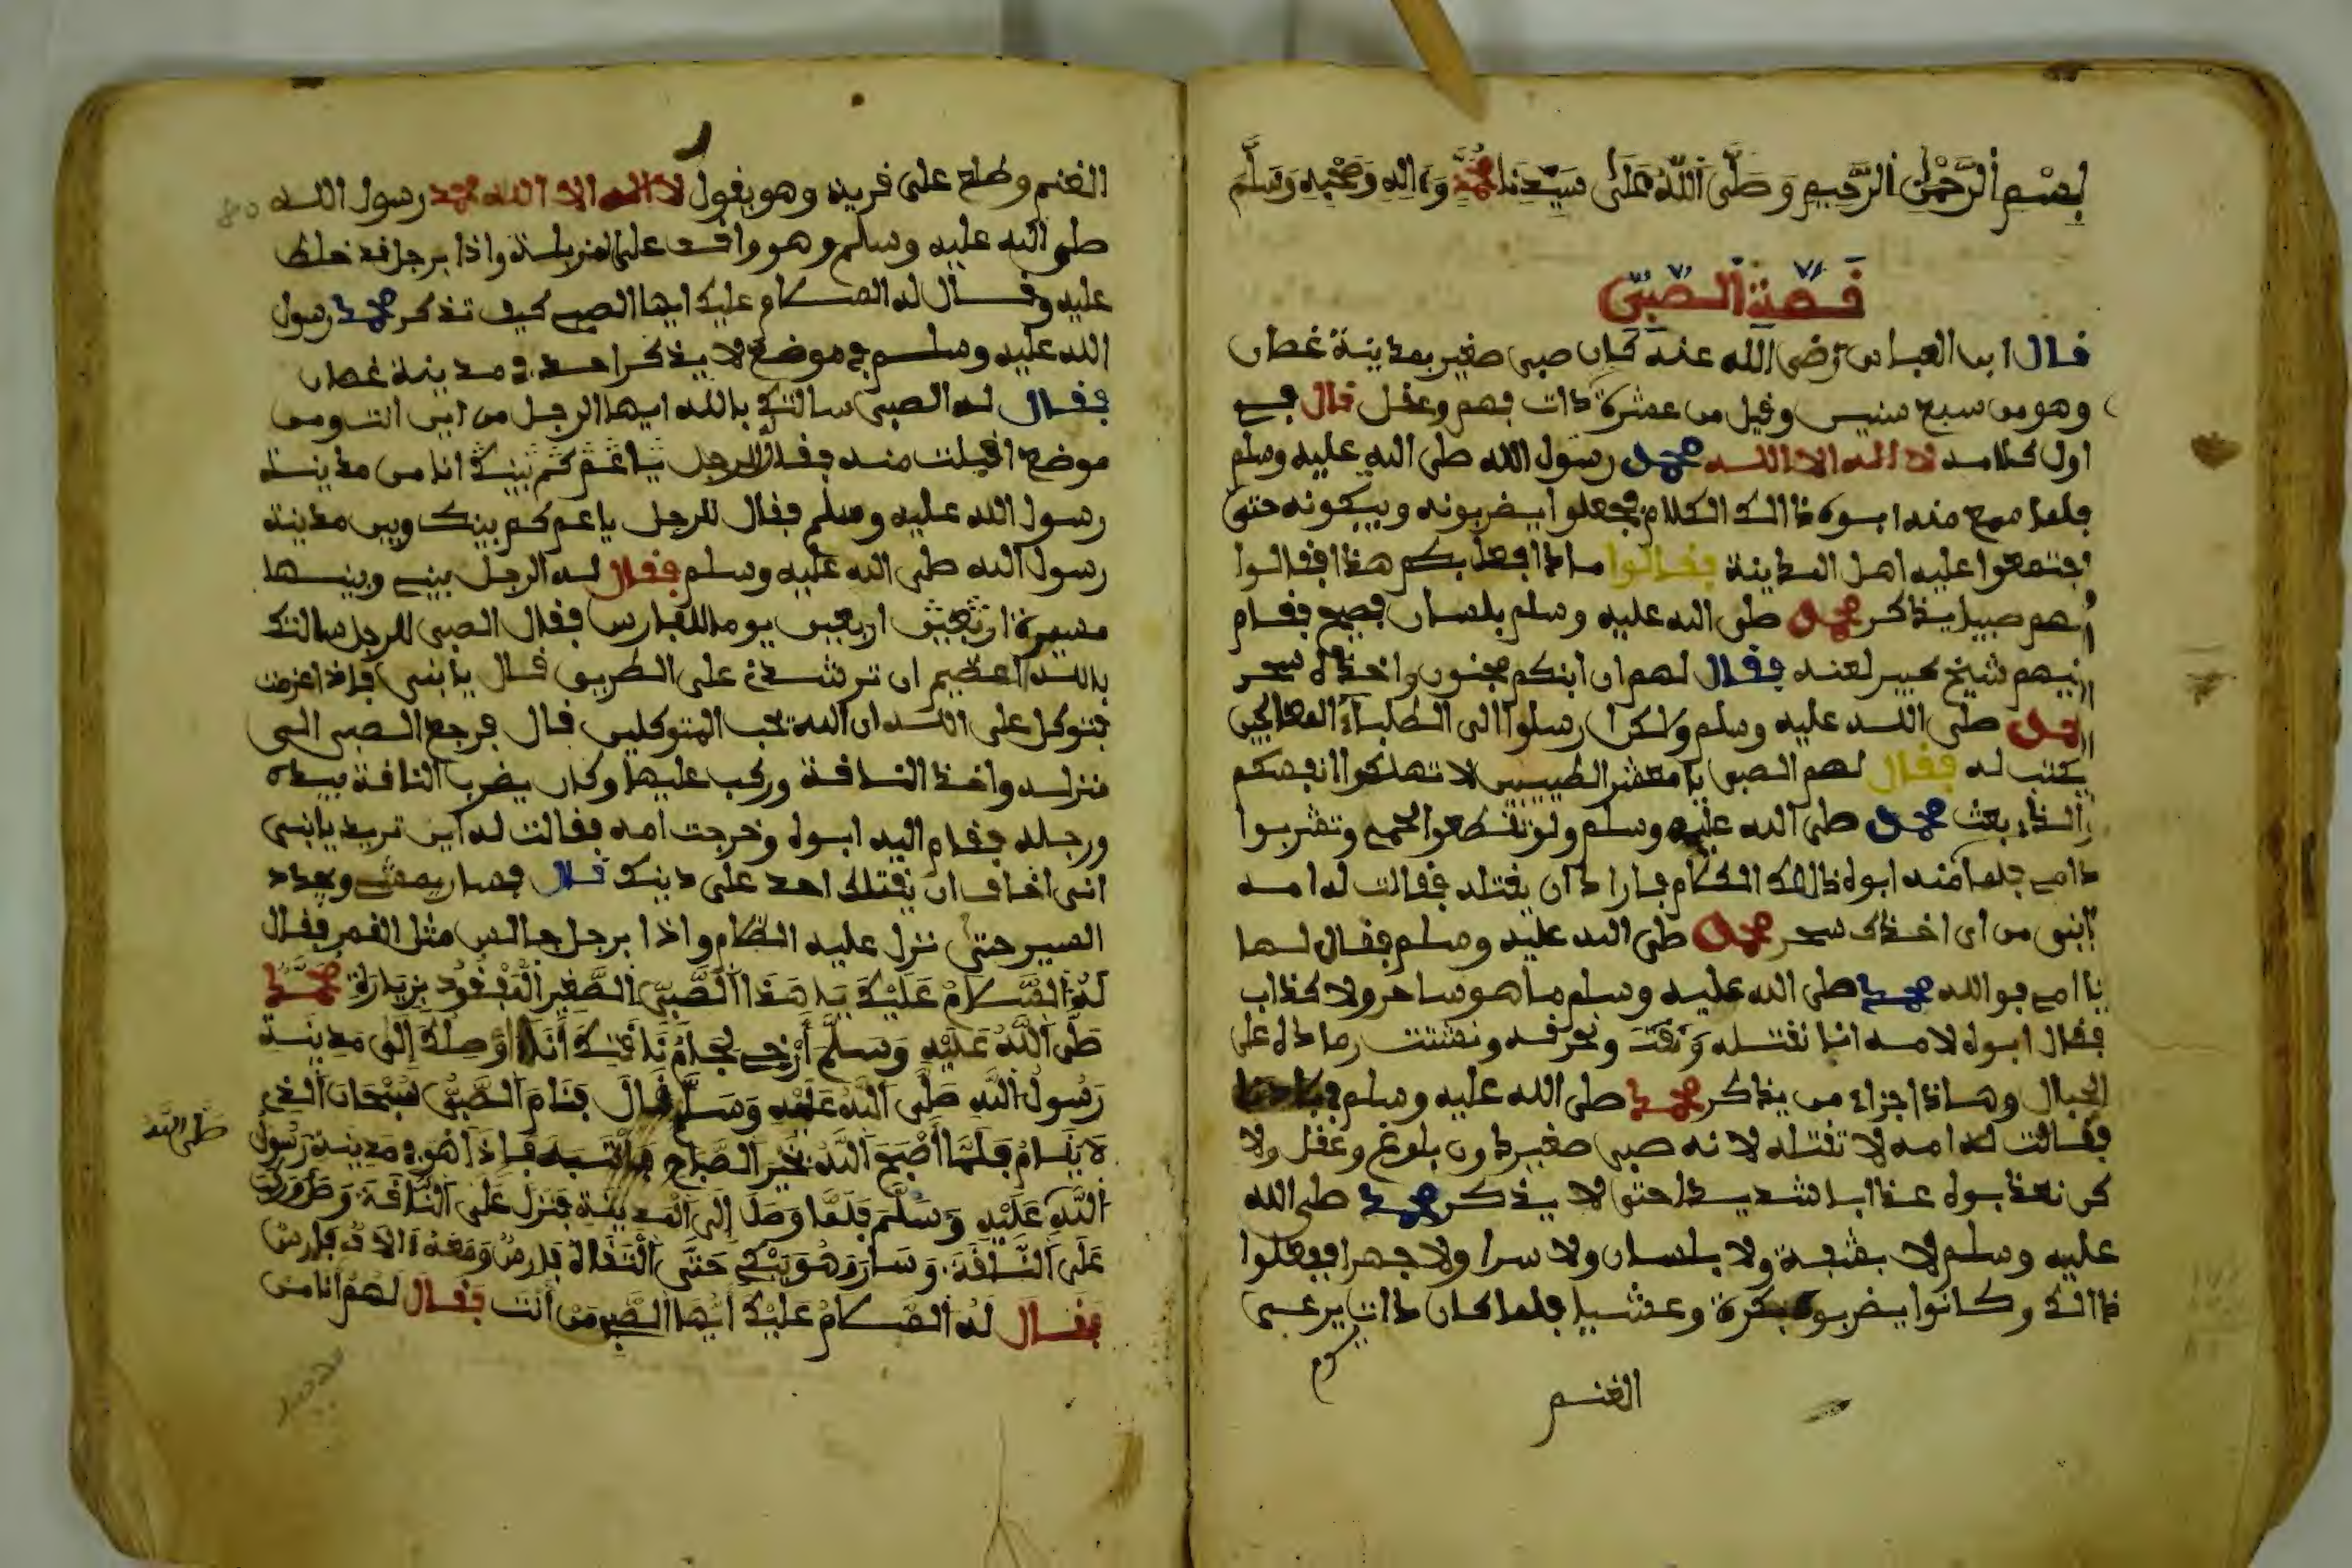 بسم الرحمن الرحيم وصلى الله على سيدنا محمد وءاله وصحبه وسلم
قصة الصبي
قال ابن العباس رضي الله عنه كان صبي صغير بمدينة غصان
وهو من سبع سنين وقيل من عشرة ذات بهم وعقل قال في
اول كلامه لا اله الا الله محمد رسول الله صلى الله عليه وسلم
فلما سمع منه ابوه ذالك الكلام فجعلوا يضربونه ويبكونه حتى
اجتمعوا عليه اهل المدينة فقالوا ماذا افعل بكم هذا فقالوا
لهم صبيا يذكر محمد صلى الله عليه وسلم بلسان فصيح فقام
اليهم شيخ كبير لعنه فقال لهم ان ابنكم مجنون واخذه سحر
محمد صلى الله عليه وسلم ولكن ارسلوا الى الطلباء المعالجين
يكتب له فقال لهم الصبي يا معشر الطبيبين لا تهلكوا انفسكم
والذي بعث محمد صلى الله عليه وسلم ولو تقطعوا لحمي وتشربوا
دامي فلما منه ابوه ذالك الكلام فارادان يقتله فقالت له امه
يابني من اي اخذك سحر محمد صلى الله عليه وسلم فقال لها
يا امي فوالله محمد صلى الله عليه وسلم ما هو ساحر ولا كذاب
فقال ابوه لامه انا نقتله ونحرقه ونشتت رماده على
الجبال وهاذا جزاء من يذكر محمد صلى الله عليه وسلم
فقالت له امه لا تقتله لانه صبي صغير دون بلوغ وعقل ولا
كن نعذبوه عذابا شديدا حتى لا يذكر محمد صلى الله
عليه وسلم لا بشفة ولا بلسان ولا سرا ولا جهرا ففعلوا
ذالك وكانوا يضربوه بكرة وعشيا فلما كان ذات يرعى
الغنم
الغنم وطلع على قرية وهو يقول لا اله الا الله محمد رسول الله
صلى الله عليه وسلم وهو واقف على واذا برجل قد خلط
عليه وقال له السلام عليك ايها الصبي كيف تذكر محمد رسول
الله عليه وسلم في موضع لا يذكر احد في مدينة غصان
فقال له الصبي سالتك بالله ايها الرجل من اين انت ومن
موضع اقبلت منه فقال الرجل يا عم كم بينك انا من مدينة
رسول الله عليه وسلم فقال للرجل يا عم كم بينك وبين مدينة
رسول الله صلى الله عليه وسلم فقال له الرجل بيني وبينها
مسيرة اربعين يوما للفارس فقال الصبي للرجل سالتك
بالله العظيم ان ترشدني على الطريق قال يابني فاذا عزمت
فتوكل على الله ان الله يحب المتوكلين قال فرجع الصبي الى
منزله واخذ الناقة وركب عليها وكان يضرب الناقة بيده
ورجله فقام اليه ابوه وخرجت امه فقالت له اين تريد يابني
اني اخاف ان يقتلك احد على دينك قال فصار يمشي ويجدد
السير حتى نزل عليه الظلام واذا برجل جالس مثل القمر فقال
له السلام عليك يا هذا الصبي الصغير المفقود بزيارة محمد
صلى الله عليه وسلم أرخي لجام ناقتك أنا اوصلك إلى مدينة
رسول الله صلى الله عليه وسلم قال فنام الصبي سبحان الذي
لا ينام فلما أصبح الله بخير الصباح فانتبه فإذا هو في مدينة رسول
صلى الله
الله عليه وسلم فلما وصل إلى المدينة فنزل على الناقة
على الناقة وسار وهو يبكي حتى التقاه فارس ومعه ءالاف فارس
فقال له السلام عليك أيها الصبي من أنت فقال لهم أنا من